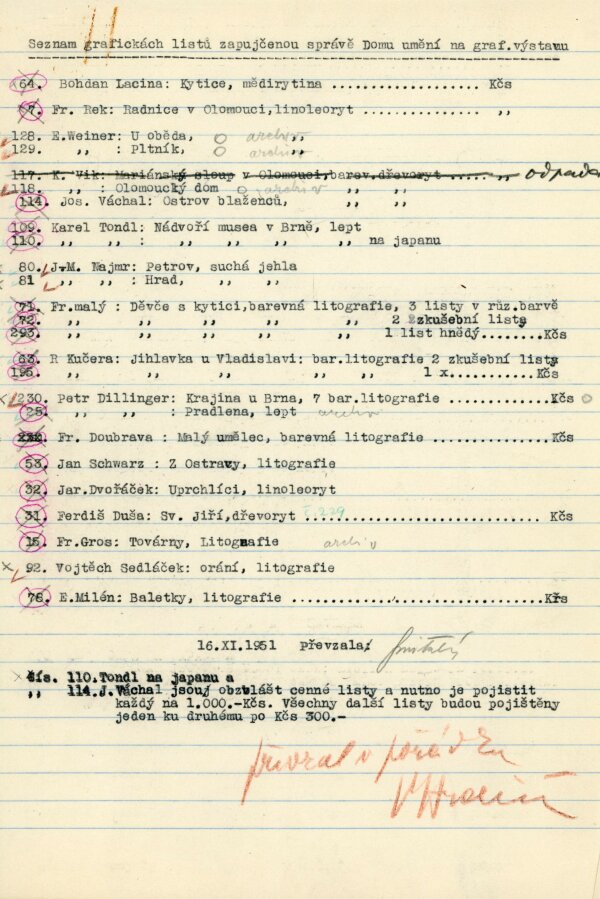 Seznam grafickách listů zapujčenou správě Domu umění na graf.výstavu
64. Bohdan Lacina: Kytice, mědirytina .................. Kčs
7. Fr. Rek: Radnice v Olomouci,linoleoryt ............... ,,
128. E.Weiner: U oběda, archiv ,,
129. ,, : Pltník, archiv ,,
117. K. Vik: Mariánský sloup v Olomouci,barev.dřevoryt ..... ,,
118. ,, : Olomoucký dom archiv ,, ,,
114. Jos. Váchal: Ostrov blaženců, ,, ,,
109. Karel Tondl: Nádvoří musea v Brně, lept
110. ,, ,, : ,, ,, ,, ,, na japanu
80. J.M. Najmr: Petrov, suchá jehla
81 ,, ,, : Hrad, ,, ,,
71. Fr.malý : Děvče s kytici,barevná litografie, 3 listy v růz.barvě
72. ,, ,, ,, ,, ,, 2 zkušební listy
293. ,, ,, ,, ,, ,, 1 list hnědý........Kčs
63. R Kučera: Jihlavka u Vladislavi: bar.litografie 2 zkušební listy
195. ,, ,, ,, ,, ,, 1 x...........Kčs
230. Petr Dillinger: Krajina u Brna, 7 bar.litografie .............Kčs
28. ,, ,, : Pradlena, lept archiv
Fr. Doubrava : Malý umělec, barevná litografie ...............Kčs
53. Jan Schwarz : Z Ostravy, litografie
32. Jar.Dvořáček: Uprchlíci, linoleoryt
31. Ferdiš Duša: Sv. Jiří,dřevoryt .............................. Kčs
15. Fr.Gros: Továrny, Litografie archiv
92. Vojtěch Sedláček: orání, litografie
78. E.Milén: Baletky, litografie ................................Kčs
16.XI.1951 Převzala:
čís. 110.Tondl na japanu a
,, 114.J.Váchal jsou obzvlášt cenné listy a nutno je pojistit
každý na 1.000.-Kčs. Všechny další listy budou pojištěny
jeden ku druhému po Kčs 300.-
převzal v pořádku